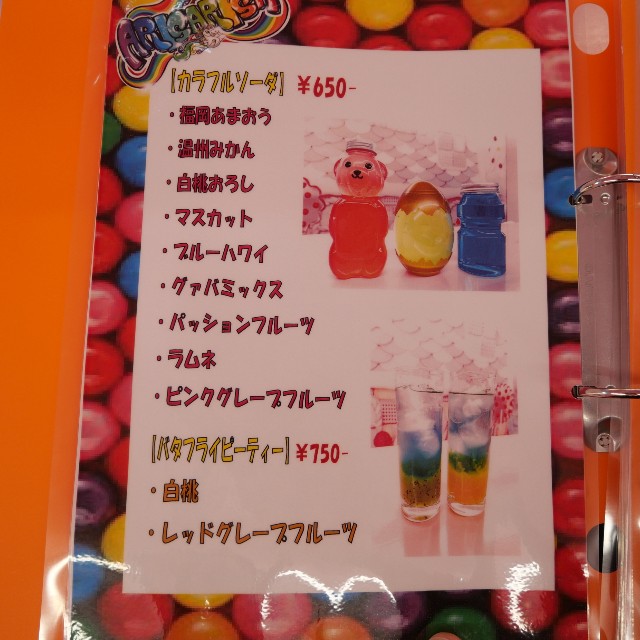 【カラフルソーダ】 ¥650-
・福岡あまおう
・温州みかん
・白桃おろし
・マスカット
・ブルーハワイ
・グァバミックス
・パッションフルーツ
・ラムネ
・ピンクグレープフルーツ
【バタフライピーティー】 ¥750-
・白桃
・レッドグレープフルーツ